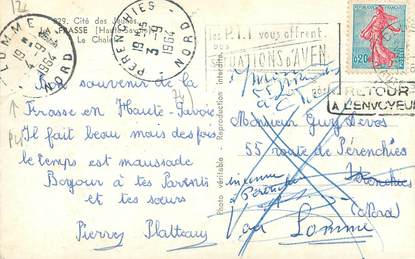 829. Cité des Jeunes
FRASSE (Haute-Savoie)
Le Chalet
LOMME
NORD
1964
PERENCHIES
19 45
3-9
1964
NORD
les P.T.T. vous offrent
des
SITUATIONS D'AVENIR
0,20
RETOUR
A L'ENVOYEUR
Photo véritable - Reproduction interdite
Bon souvenir de la
Frasse en Haute-Savoie
Il fait beau mais des fois
le temps est maussade
Bonjour à tes Parents
et tes sœurs
Pierrey Platteau
Monsieur Guy Devos
55 route de Pérenchies
inconnu
à Pérenchies
Pérenchies
(Nord)
Voir Lomme